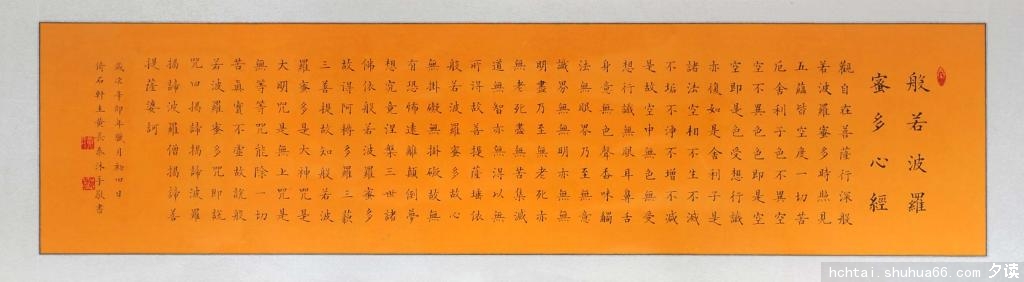 般若波羅
蜜多心經
觀自在菩薩行深般
若波羅蜜多時照見
五蘊皆空度一切苦
厄舍利子色不異空
空不異色色即是空
空即是色受想行識
亦復如是舍利子是
諸法空相不生不滅
不垢不淨不增不減
是故空中無色無受
想行識無眼耳鼻舌
身意無色聲香味觸
法無眼界乃至無意
識界無無明亦無無
明盡乃至無老死亦
無老死盡無苦集滅
道無智亦無得以無
所得故菩提薩埵依
般若波羅蜜多故心
無掛礙無掛礙故無
有恐怖遠離顛倒夢
想究竟涅槃三世諸
佛依般若波羅蜜多
故得阿耨多羅三藐
三菩提故知般若波
羅蜜多是大神咒是
大明咒是無上咒是
無等等咒能除一切
苦真實不虛故說般
若波羅蜜多咒即說
咒曰揭諦揭諦波羅
揭諦波羅僧揭諦菩
提薩婆訶
歲次辛卯年臘月初四日
倚石軒主黃長春沐手敬書
hchtai.shuhua66.com 夕读